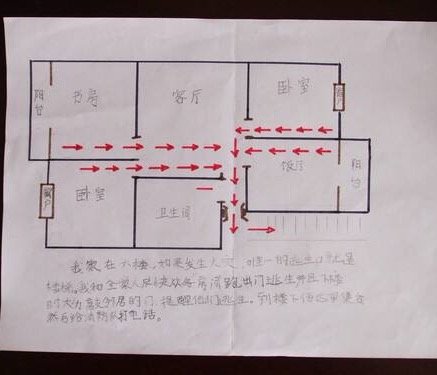 书房
客厅
卧室
阳台
窗户
饭厅
阳台
窗户
卧室
卫生间
我家在六楼，如果发生火灾，唯一的逃生口就是
楼梯。我和全家人尽快从各房间跑出门逃生并且不
时大力敲邻居的门，提醒他们逃生。到楼下
然后给消防队打电话。